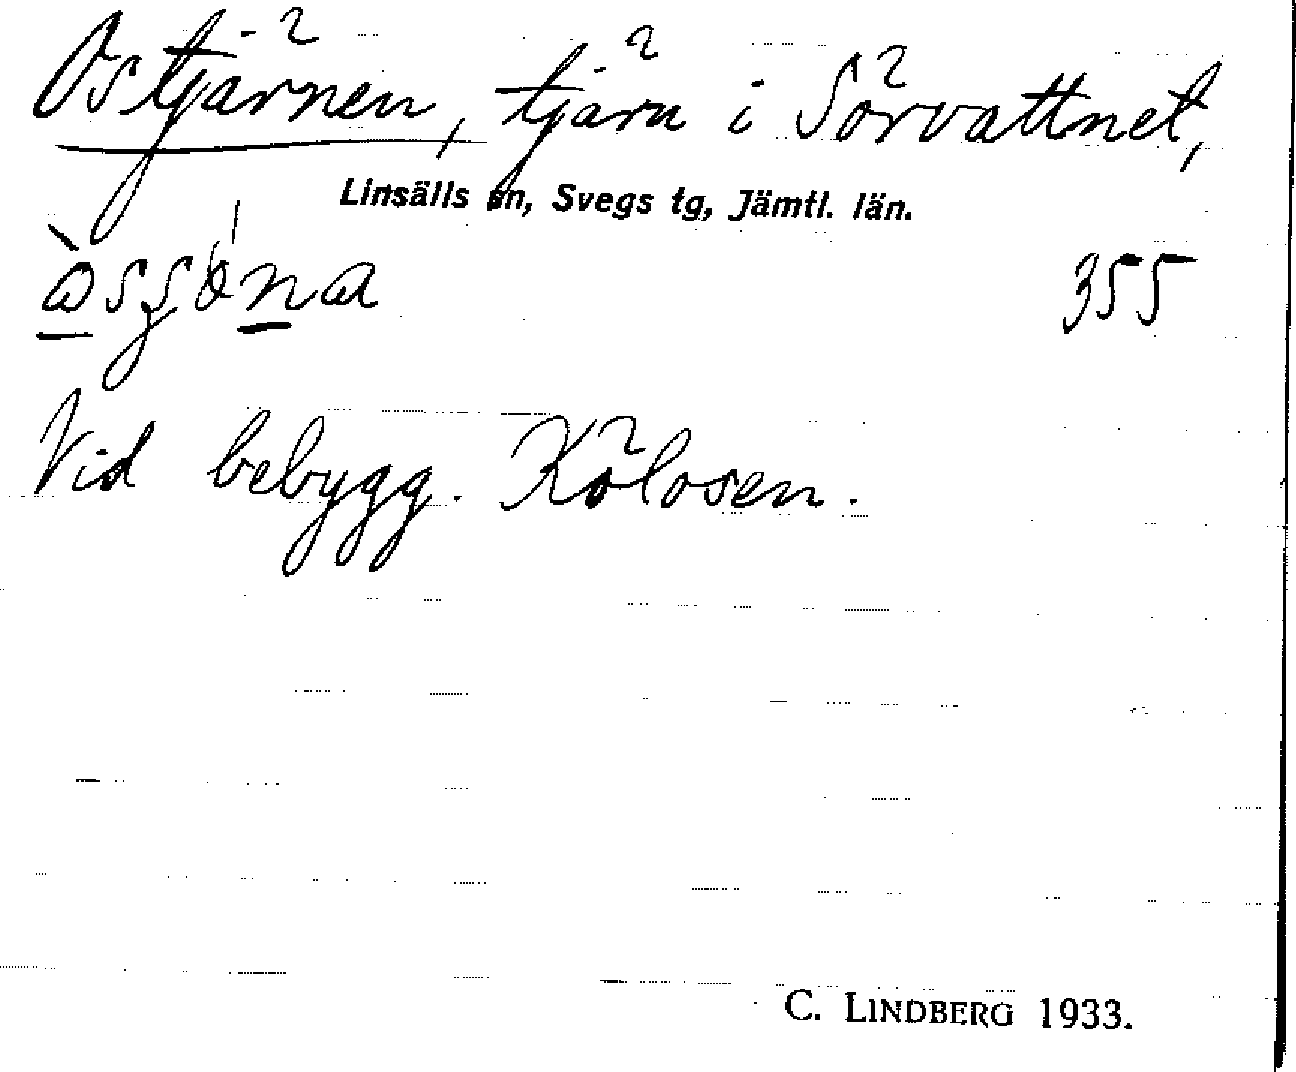 Ostjärnen, tjärn i Sörvattnet,
Linsälls sn, Svegs tg, Jämtl. län.
355
Vid bebygg. Kölosen.
C. LINDBERG 1933.